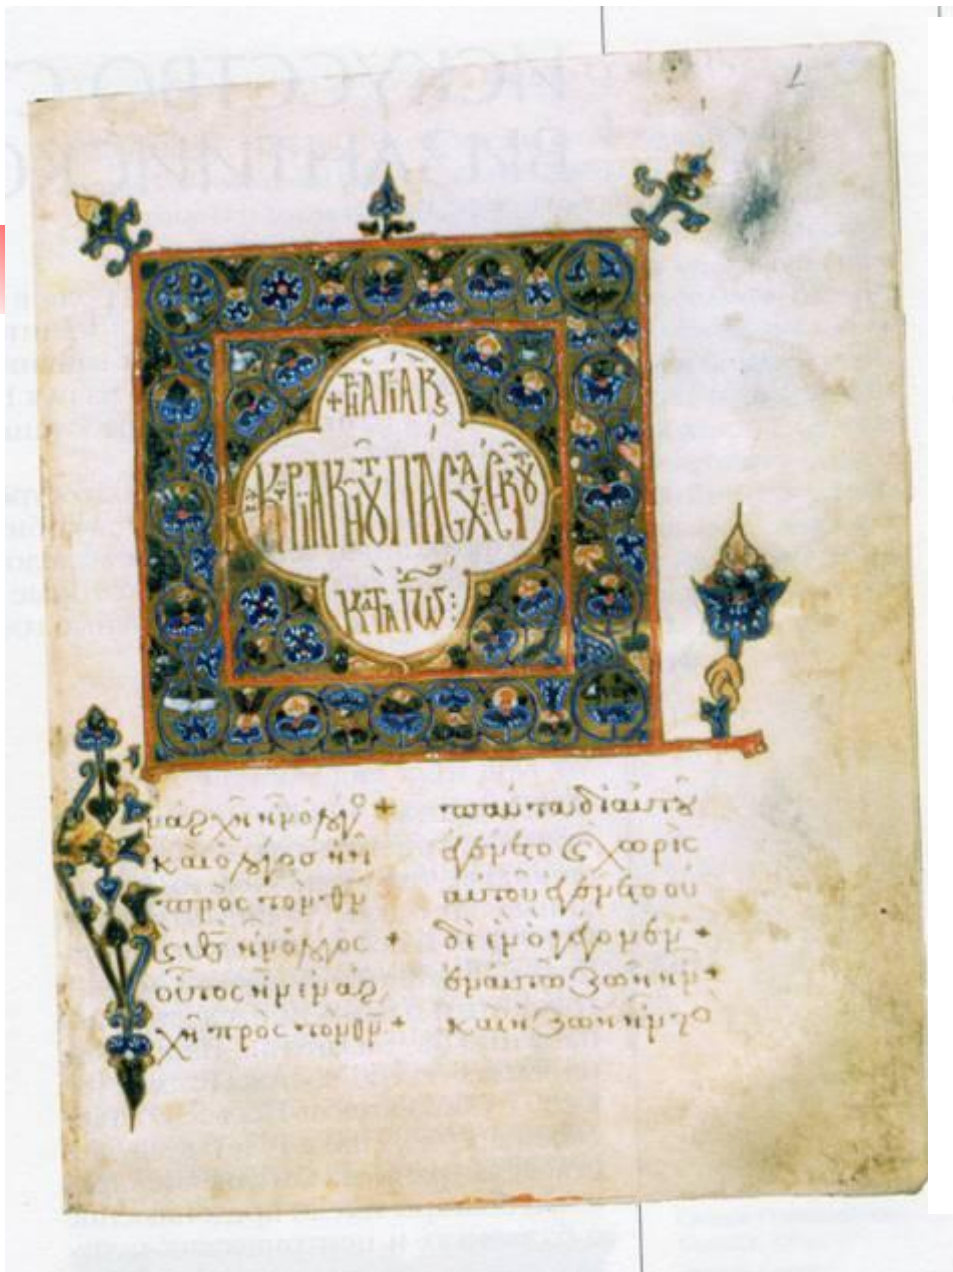 +ΤΗ ΑΓΙΑ Κ
ΚΥΡΙΑΚΗ ΤΟΥ ΠΑΣΧΑ ΕΚ ΤΟΥ
ΚΑΤΑ ΙΩ:
ν ἀρχῆ ἦν ὁ λόγο +
καὶ ὁ λόγος ἦν
πρὸς τὸν θν
ϗ θς ἦν ὁ λόγος +
οὗτος ἦν ἐν ἀρ
χῆ πρὸς τὸν θν +
πάντα δι αὐτοῦ
ἐγένετο ϗ χωρὶς
αὐτοῦ ἐγένετο οὐ
δὲ ἓν ὃ γέγονεν +
ἐν αὐτῶ ζωὴ ἦν +
καὶ ἡ ζωὴ ἦν τὸ